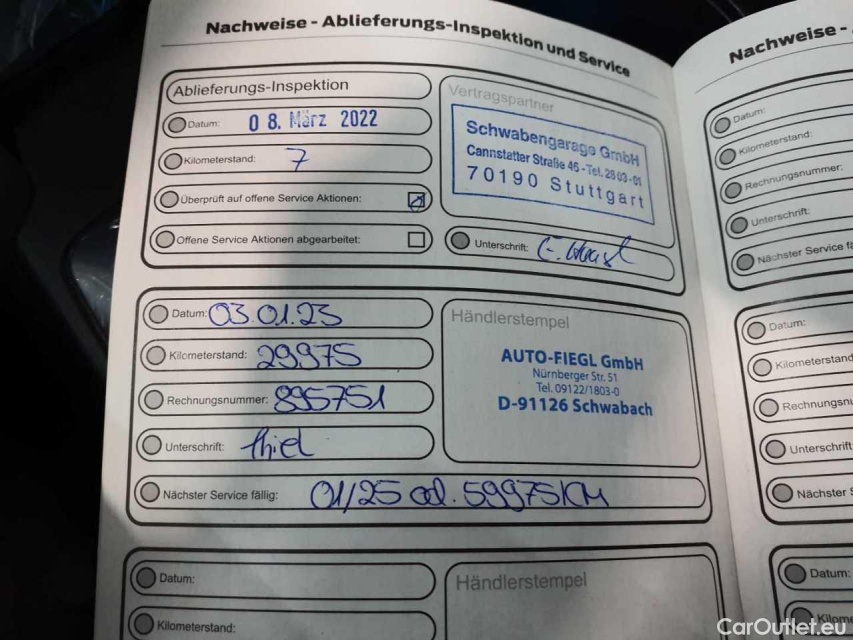 Nachweise - Ablieferungs-Inspektion und Service
Ablieferungs-Inspektion
Datum: 08. März 2022
Kilometerstand: 7
Überprüft auf offene Service Aktionen:
Offene Service Aktionen abgearbeitet:
Vertragspartner
Schwabengarage GmbH
Cannstatter Straße 46 - Tel. 28 03-01
70190 Stuttgart
Unterschrift:
Datum: 03.01.23
Kilometerstand: 29975
Rechnungsnummer: 895751
Unterschrift: Thiel
Nächster Service fällig: 01/25 od. 59975KM
Händlerstempel
AUTO-FIEGL GmbH
Nürnberger Str. 51
Tel. 09122/1803-0
D-91126 Schwabach
Datum:
Kilometerstand:
Händlerstempel
Nachweise -
Datum:
Kilometerstand:
Rechnungsnummer:
Unterschrift:
Nächster Service fä
Datum:
Kilometerstand
Rechnungsnu
Unterschrift
Nächster
Datum:
Kilome
CarOutlet.eu